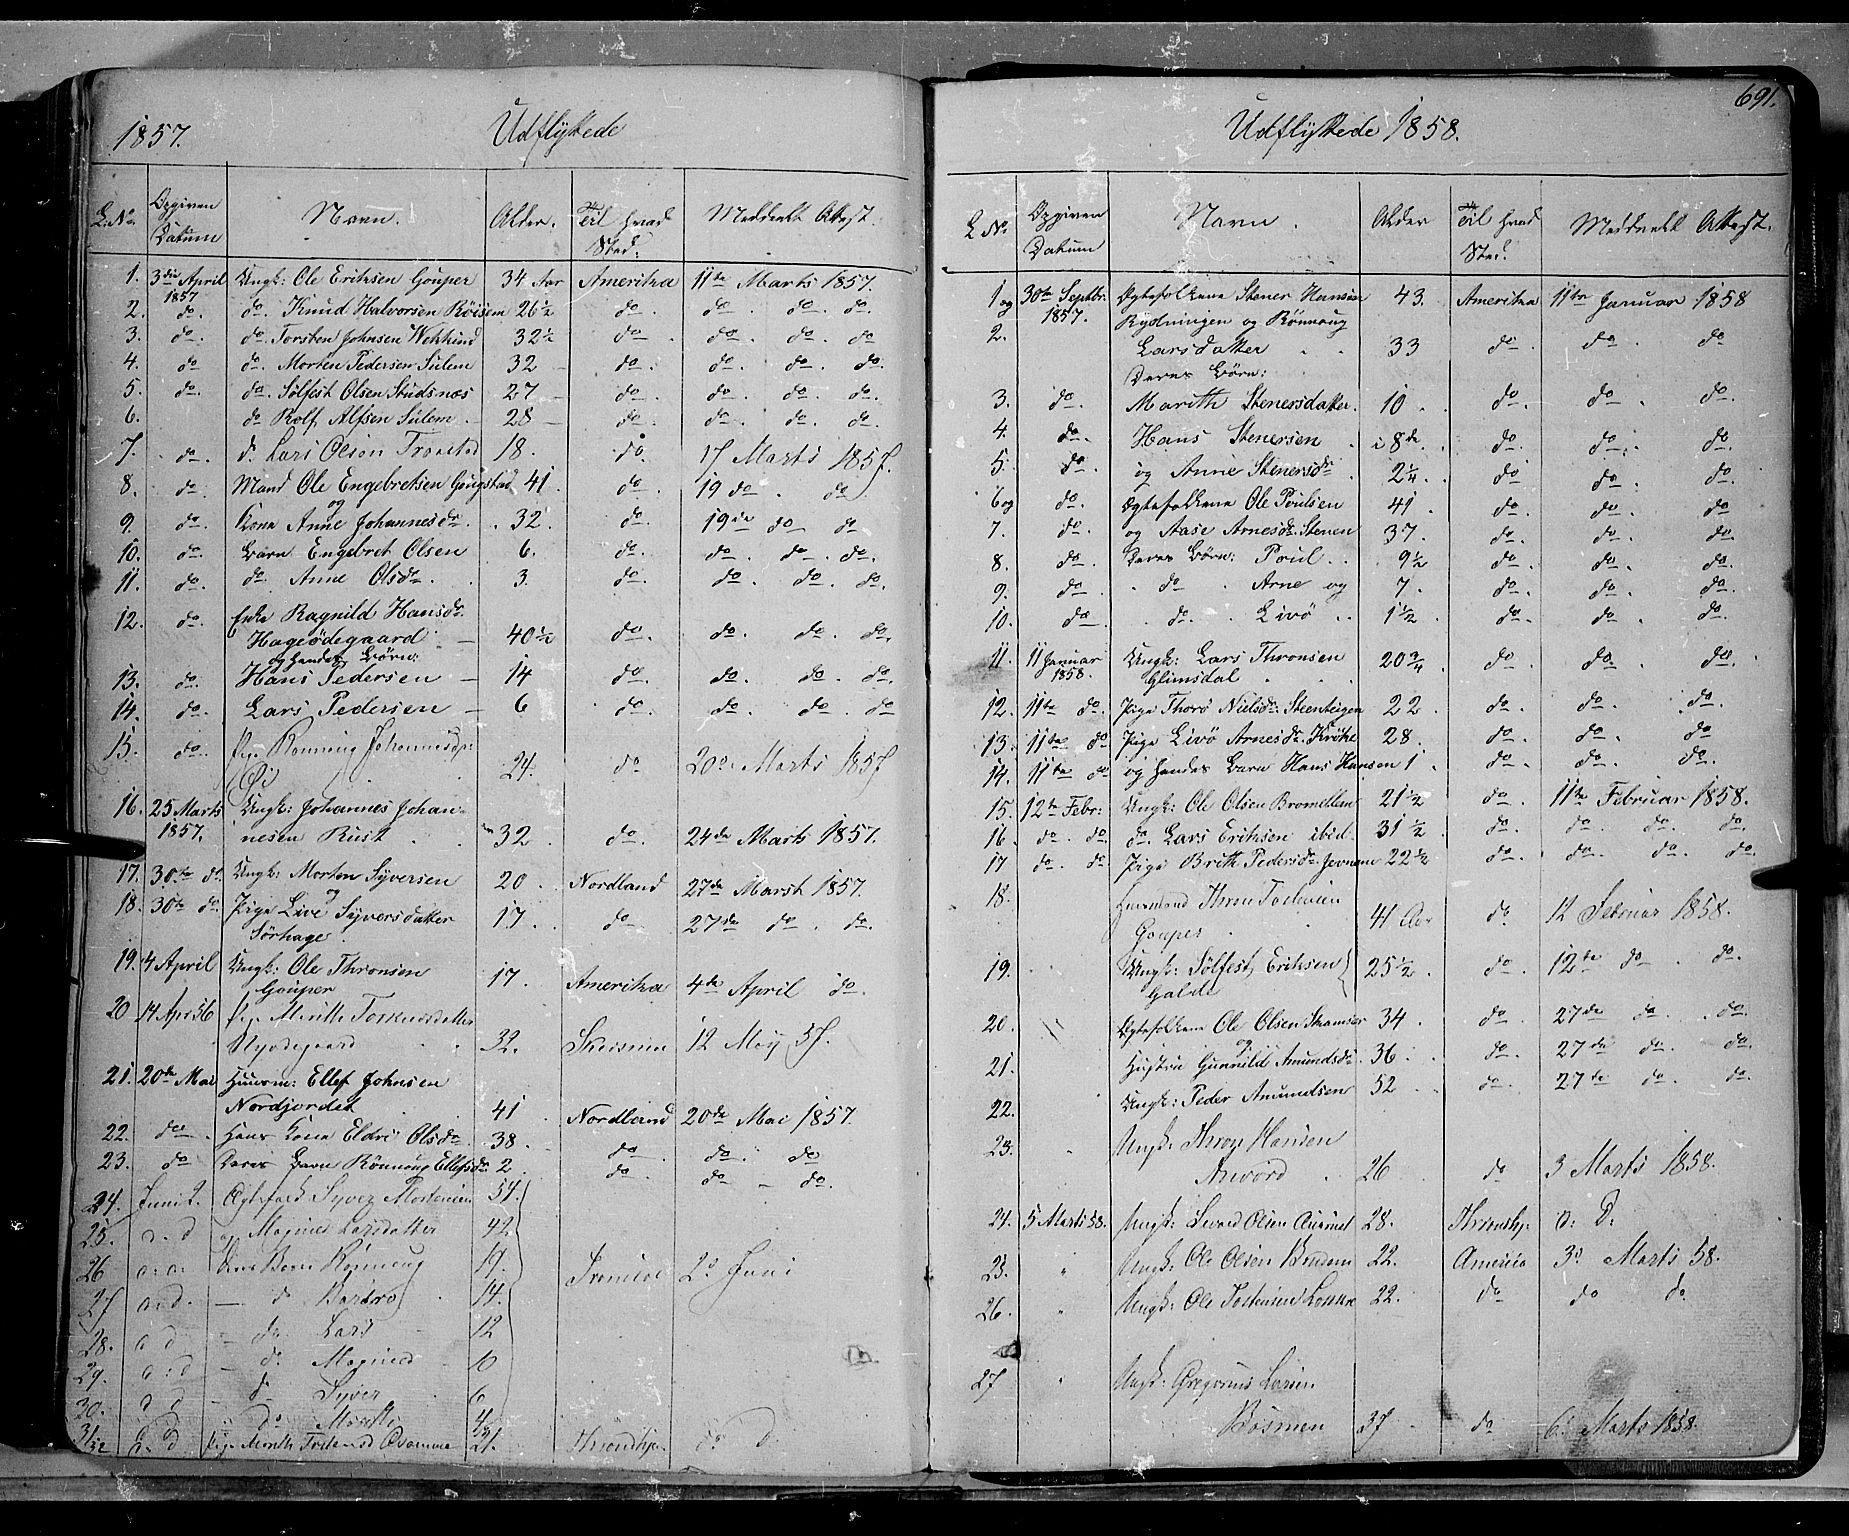 1857. Udflyttede
L. No. Opgiven Datum Navn. Alder. Til hvad Sted. Meddeelt Attest.
1. 3die April 1857 Ungk: Ole Eriksen Gouper 34 Aar Amerika 11te Marts 1857.
2. do. do. Knud Halvorsen Röisem 26 1/2 do. do. do. do.
3. do. do. Torsten Johnsen Wekkind 32 1/2 do. do. do. do
4. do do. Morten Pedersen Sulem 32 do. do. do. do.
5. do. do. Sölfest Olsen Studsnæs 27 do. do. do. do.
6. do Rolf Alfsen Sulem 28 do. do. do. do.
7. do. d. Lars Olsen Tronstad 18. do. 17 Marts 1857.
8. do Mand Ole Engebretsen Gougstad 41. do. 19 do. do
og
9. do. Kone Anne Johannesdr. 32. do. 19de do do
10. do. Barn Engebret Olsen 6. do. do. do. do.
11. do. do. Anne Olsdr. 3 do. do. do. do.
12. do. Enke Ragnild Hansdr.
Hageödegaard 40 1/2 do. do. do. do.
og hendes Börn:
13. do. Hans Pedersen 14 do. do. do. do.
14. do. Lars Pedersen 6 do. do. do. do
15. do. Pige Ronnoug Johannesdr:
Öi 24. do 20de Marts 1857
16. 25 Marts Ungk: Johannes Johan-
1857. nesen Rust 32 do. 24de Marts 1857.
17. 30te do. Ungk: Morten Syversen 20. Nordland 27de Marst 1857.
og
18. 30te do. Pige Live Syversdatter 17. do. 27de do. do.
Sörhage.
19. 4 April Ungk: Ole Thronsen 17. Amerika 4de April do.
Gouper
20 14 Apr 56 Pige Maritte Torstensdatter
Nyödegaard 32. 12 Maj 57.
21. 20de Mai Huusm: Ellef Johnsen
Nordjordet 41 Nordland 20de Mai 1857.
22. do. Hans Kone Eldri Olsdr. 38. do. do. do
23. do Deres Barn Rönnoug Ellefsdr. 2. do. do. do.
24. Juni 2. Ægtefolk Syver Mortensen 54.
25. o. d og Magnild Larsdatter 42
26 o: o: Börn Rönnoug 19. Tromsöe 2de Juni
27 o. d. do Barbro 14.
28. o d do Lars 12
29. o: d do. Magnild 10
30. o d do Syver 6
31 do Marith 4
32 o. d Pige Marith Tostensd Qvamme 21. Throndhj. do d
691.
Udflyttede 1858.
L No. Opgiven Datum Navn. Alder Til hvad Sted. Meddeelt Attest.
1 og 30te Septbr. Ægtefolkene Stener Hansen 43. Amerika 11te Januar 1858
1857. Rydningen og Rönnoug
2. Larsdatter 33 do. do. do
Deres Börn:
3. do. Marith Stenersdatter. 10. do. do. do.
4. do. Hans Stenersen i 8de do. do. do.
5. do. og Anne Stenersdr. 2 1/4. do do. do.
6 og do. Ægtefolkene Ole Poulsen 41. do. do. do.
7. do. og Aase Arnesdr. Stenen 37. do. do. do.
8. do. Deres Börn: Poul 9 1/2 do. do. do.
9. do. do Arne og 7. do. do. do.
10. do do. Livö 1 1/2. do. do. do.
11. 11 Januar Ungk: Lars Thronsen 20 3/4 do. do. do.
1858. Glimsdal
12. 11te do. Pige Thorö Nielsdr. Steenteigen 22 do. do. do.
13. 11te do Pige Livö Arnesdr. Kröke 28. do. do. do
14. 11te do og hendes Barn Hans Hansen 1. do. do. do.
15. 12te Febr: Ungk: Ole Olsen Bromellem 21 1/2 do. 11te Februar 1858.
16. do. do. do. Lars Eriksen ibid. 31 1/2 do. do. do. do.
17 do. do. Pige Britt Pedersdr. Jernem 22 1/2 do. do. do. do.
18. Huusmand Thron Tostensen
Gouper 41 Aar do. 12 Februar 1858.
19. Ungk: Sölfest Eriksen 25 1/2 do. 12te do. do.
Galde
20. Ægtefolkene Ole Olsen Stramsør 34. do. 27de do. do.
og
21. Hustru Gunnild Amundsdr. 36. do. 27de do. do.
22. Ungk: Peder Amundsen 52 do. 27de do. do.
23. Ungk: Thron Hansen
26 do 3 Marts 1858.
24. 5 Marts 58. Ungk: Siverd Olsen 28. Throndhj. o: d:
25. " Ungk: Ole Olsen 22. America 3d Marts 58.
26. " Ungk: Ole Tostensen Løkkre 22. do do do.
27 " Ungk: Gregorius Larsen
Bösmen 37 do 6. Marts 1858.